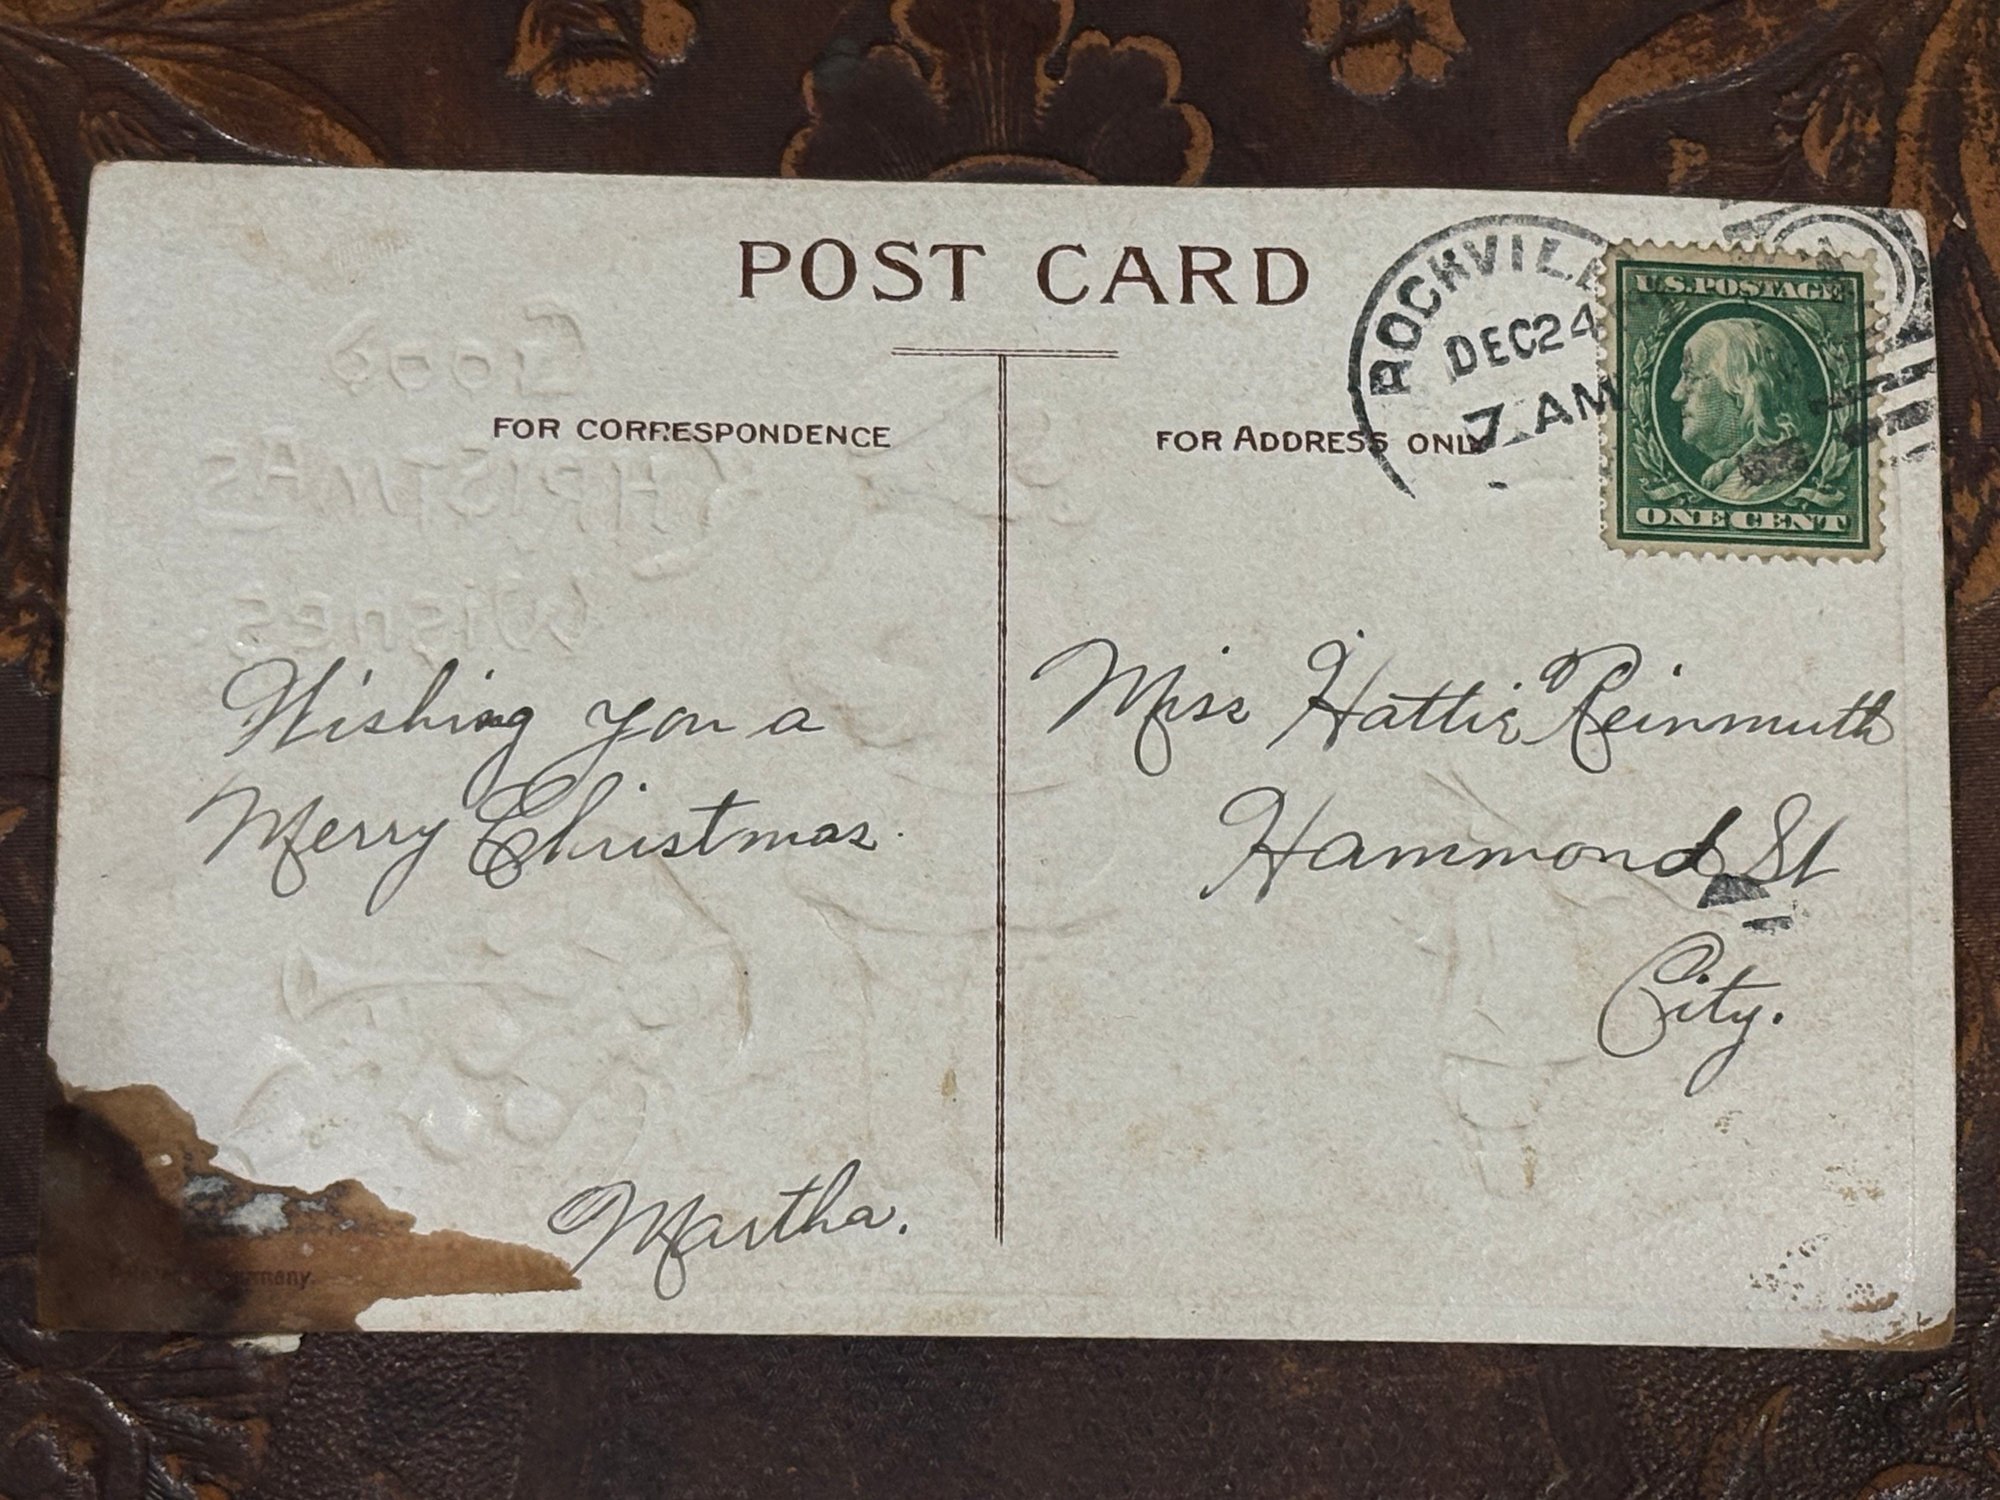 POST CARD
ROCKVILLE
DEC 24
7 AM
U.S. POSTAGE
ONE CENT
FOR CORRESPONDENCE
FOR ADDRESS ONLY
Wishing you a
Merry Christmas.
Martha.
Miss Hattie Reinmuth
Hammond St
City.
GOOD
CHRISTMAS
Wishes